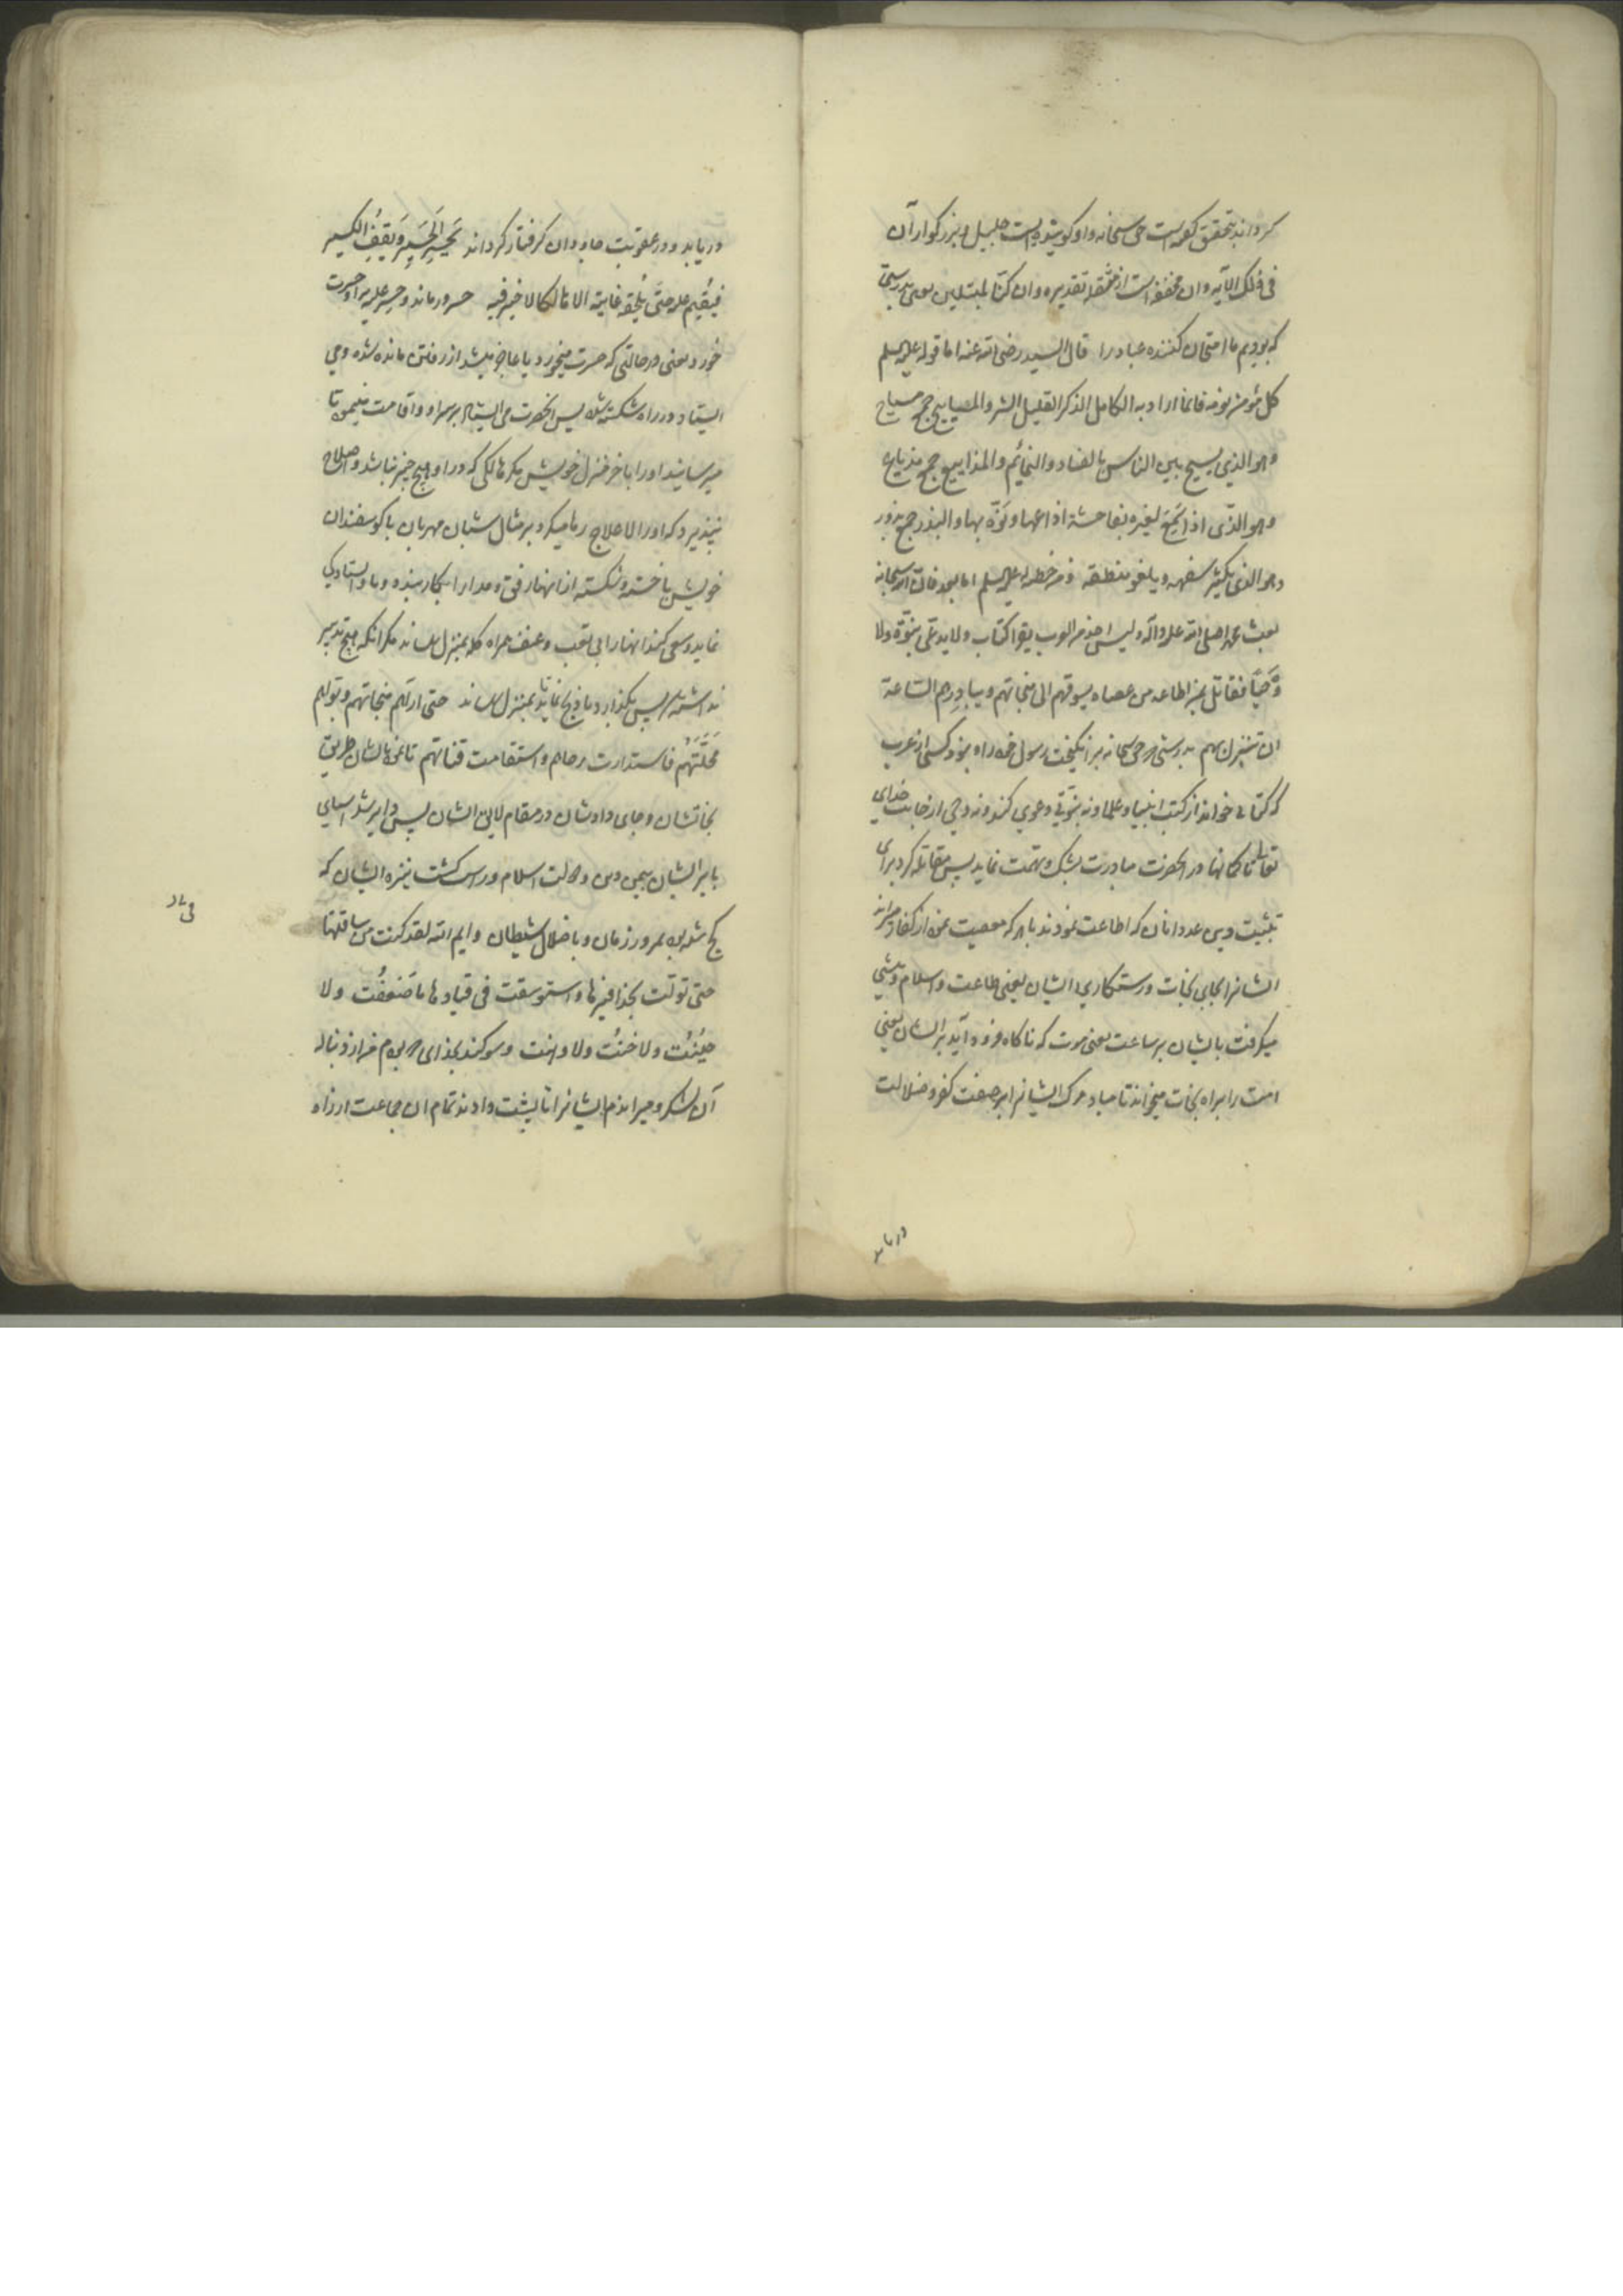 گرداند بتحقیق گفته است حق سبحانه و او گوینده ایست جلیل و بزرگوار آن
فی ذلک الآیه و ان مخففه است از مثقله تقدیره و ان کنا لمبتلین یعنی بدرستی
که بودیم ما امتحان کننده عباد را قال السید رضی الله عنه اما قوله علیه السلم
کل مؤمن نومه فانما اراد به الخامل الذکر القلیل الشر و المصابیح جمع مسیاح
و هو الذی یسیح بین الناس بالفساد و النمائم و المذاییع جمع مذیاع
و هو الذی اذا سمع لغیره بفاحشة اذاعها و نوّه بها و البذر جمع بذور
و هو الذی یکثر سفهه و یلغو منطقه و من خطبه له علیه السلم اما بعد فان الله سبحانه
بعث محمدا صلی الله علیه و آله و لیس احد من العرب یقرا کتابا و لا یدعی نبوّة و لا
وَحیًا فقاتل بمن اطاعه من عصاه یسوقهم الی منجاتهم و یبادر بهم الساعة
ان تنزل بهم بدرستی که حق سبحانه برانگیخت رسول خود را و نبود کسی از عرب
که کتابی خواند از کتب انبیا و علما و نه نبوتی دعوی کند و نه وحی از جانب خدای
تعالی تا کمانها در آنحضرت مبادرت بشک و تهمت نماید پس مقاتله کرد برای
تثبیت دین عدد آنان که اطاعت نمودند با هر که معصیت نمود از کفار میراند
ایشانرا بجای نجات و رستگاری ایشان یعنی طاعت و اسلام و پیشی
میگرفت بایشان بر ساعت یعنی موت که ناگاه فرود آید بر ایشان یعنی
امت را براه نجات میخواند تا مبادا مرگ ایشانرا بر صفت کفر و ضلالت
دریابد
دریابد و در عقوبت جاودان گرفتار گرداند یَحْسِرُ الحَسِیر و یَقِفُ الکسیر
فیُقیم علیه حتّی یُلحِقَه غایته الا هالکا لا خیر فیه حسرور ماند و حسر علیه برا و حسرت
خورد یعنی در حالتی که حسرت میخورد یا عاجز میشد از رفتن مانده شده و می
ایستاد در راه شکسته شده پس آنحضرت می ایستاد بر سر او و اقامت مینمود تا
میرسانید او را بآخر منزل خویش مگر هالکی که در او هیچ خیر نباشد و اصلاح
نپذیرد که او را لا علاج رها میکرد بر مثال شبان مهربان با گوسفندان
خویش با خسته و شکسته از آنها رفق و مدارا بکار بندد و با و ایستادگی
نماید و سعی کند آنها را بی تعب و عنف همراه گله بمنزل رساند مگر آنکه هیچ تدبیر
نداشته باشد پس بگذارد یا ذبح نماید تا بمنزل رساند حتی اراهم منجاتهم و بوّاهم
مَحلّتَهُم فاستدارت رحاهم و استقامت قناتهم تا نمود بایشان طریق
نجاتشان و جای دادشان در مقام لایق ایشان پس دایر شد آسیای
تدابیر ایشان بیمن دین و دولت اسلام و راست گشت نیزه ایشان که
کج شده بود بمرور زمان و باضلال شیطان و ایم الله لقد کنت من ساقتها
حتی تولّت بحذافیرها و استوسقت فی قیادها ما ضَعُفْتُ و لا
جَبُنْتُ و لا خُنْتُ و لا وهنت و سوگند بخدای که بودم من از دنباله
آن لشکر و میراندم ایشانرا تا پشت دادند تمام آن جماعت از راه